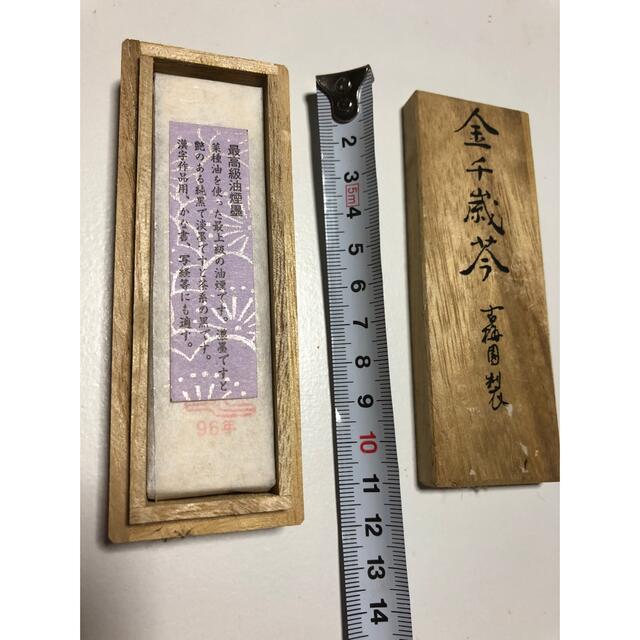 最高級油煙墨
菜種油を使った最上級の油煙です。濃墨ですと
艶のある純黒で淡墨ですと茶系の黒です。
漢字作品用、かな書、写経等にも適す。
96年
2
3
5m
4
5
6
7
8
9
10
11
12
13
14
金千歳芩
古梅園製